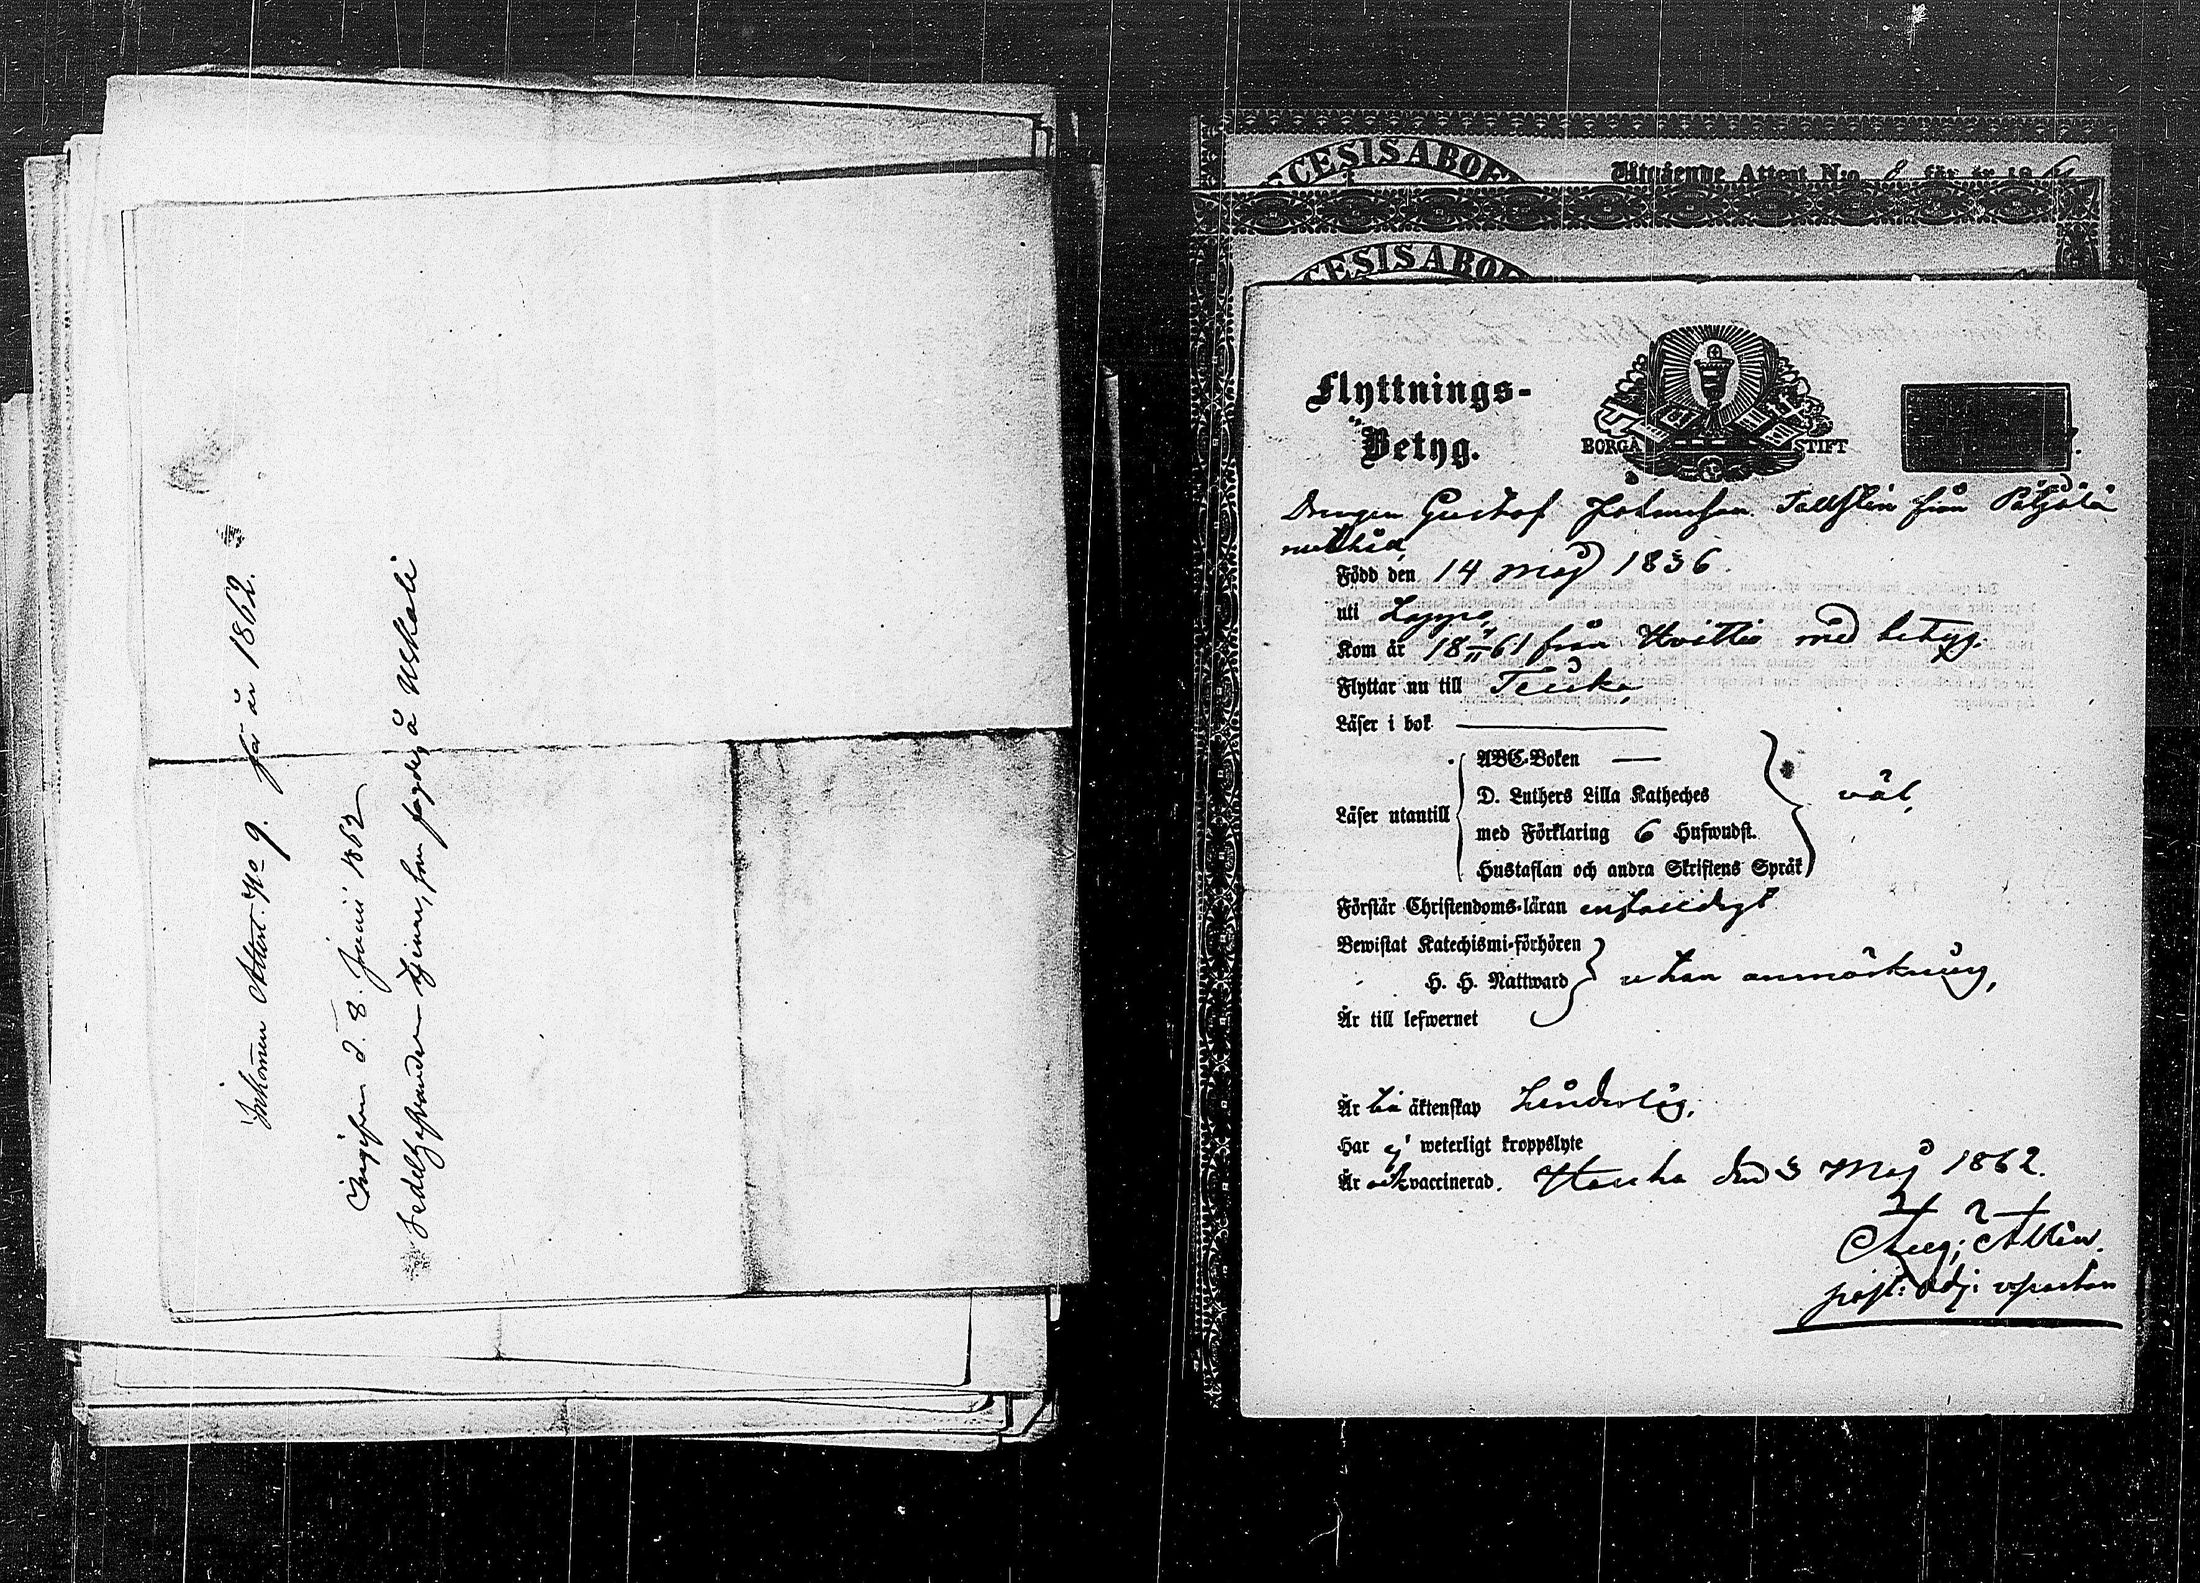 Inkommen Attest. No 9. för år 1862.
Ingifven d. 8. Junii 1862
Sedelhafvanden tjenar, som fogde, å Uskali
CESIS ABOE
Utgående Attest N:o 8 för år 186
CESIS ABOE
Flyttnings-
Betyg.
BORGÅ STIFT
Drengen Gustof Johansson Tallsten från
Född den 14 Maj 1836.
uti Loppo,
Kom år 18 61 från Hvittis med betyg.
Flyttar nu till Teisko,
Läser i bok
ABC-Boken —
D. Luthers Lilla Katheches
Läser utantill
väl,
med Förklaring 6 Hufwudst.
Hustaflan och andra Skriftens Språk
Förstår Christendoms-läran enfaldigt
Bewistat Katechismi-förhören
H. H. Nattward
utan anmärkning,
Är till lefwernet
Är till äktenskap hinderlös,
Har ej weterligt kroppslyte
Är ock vaccinerad. Hauho den 3 Maj 1862.
Aug: Allén.
past: adj: v.pastor